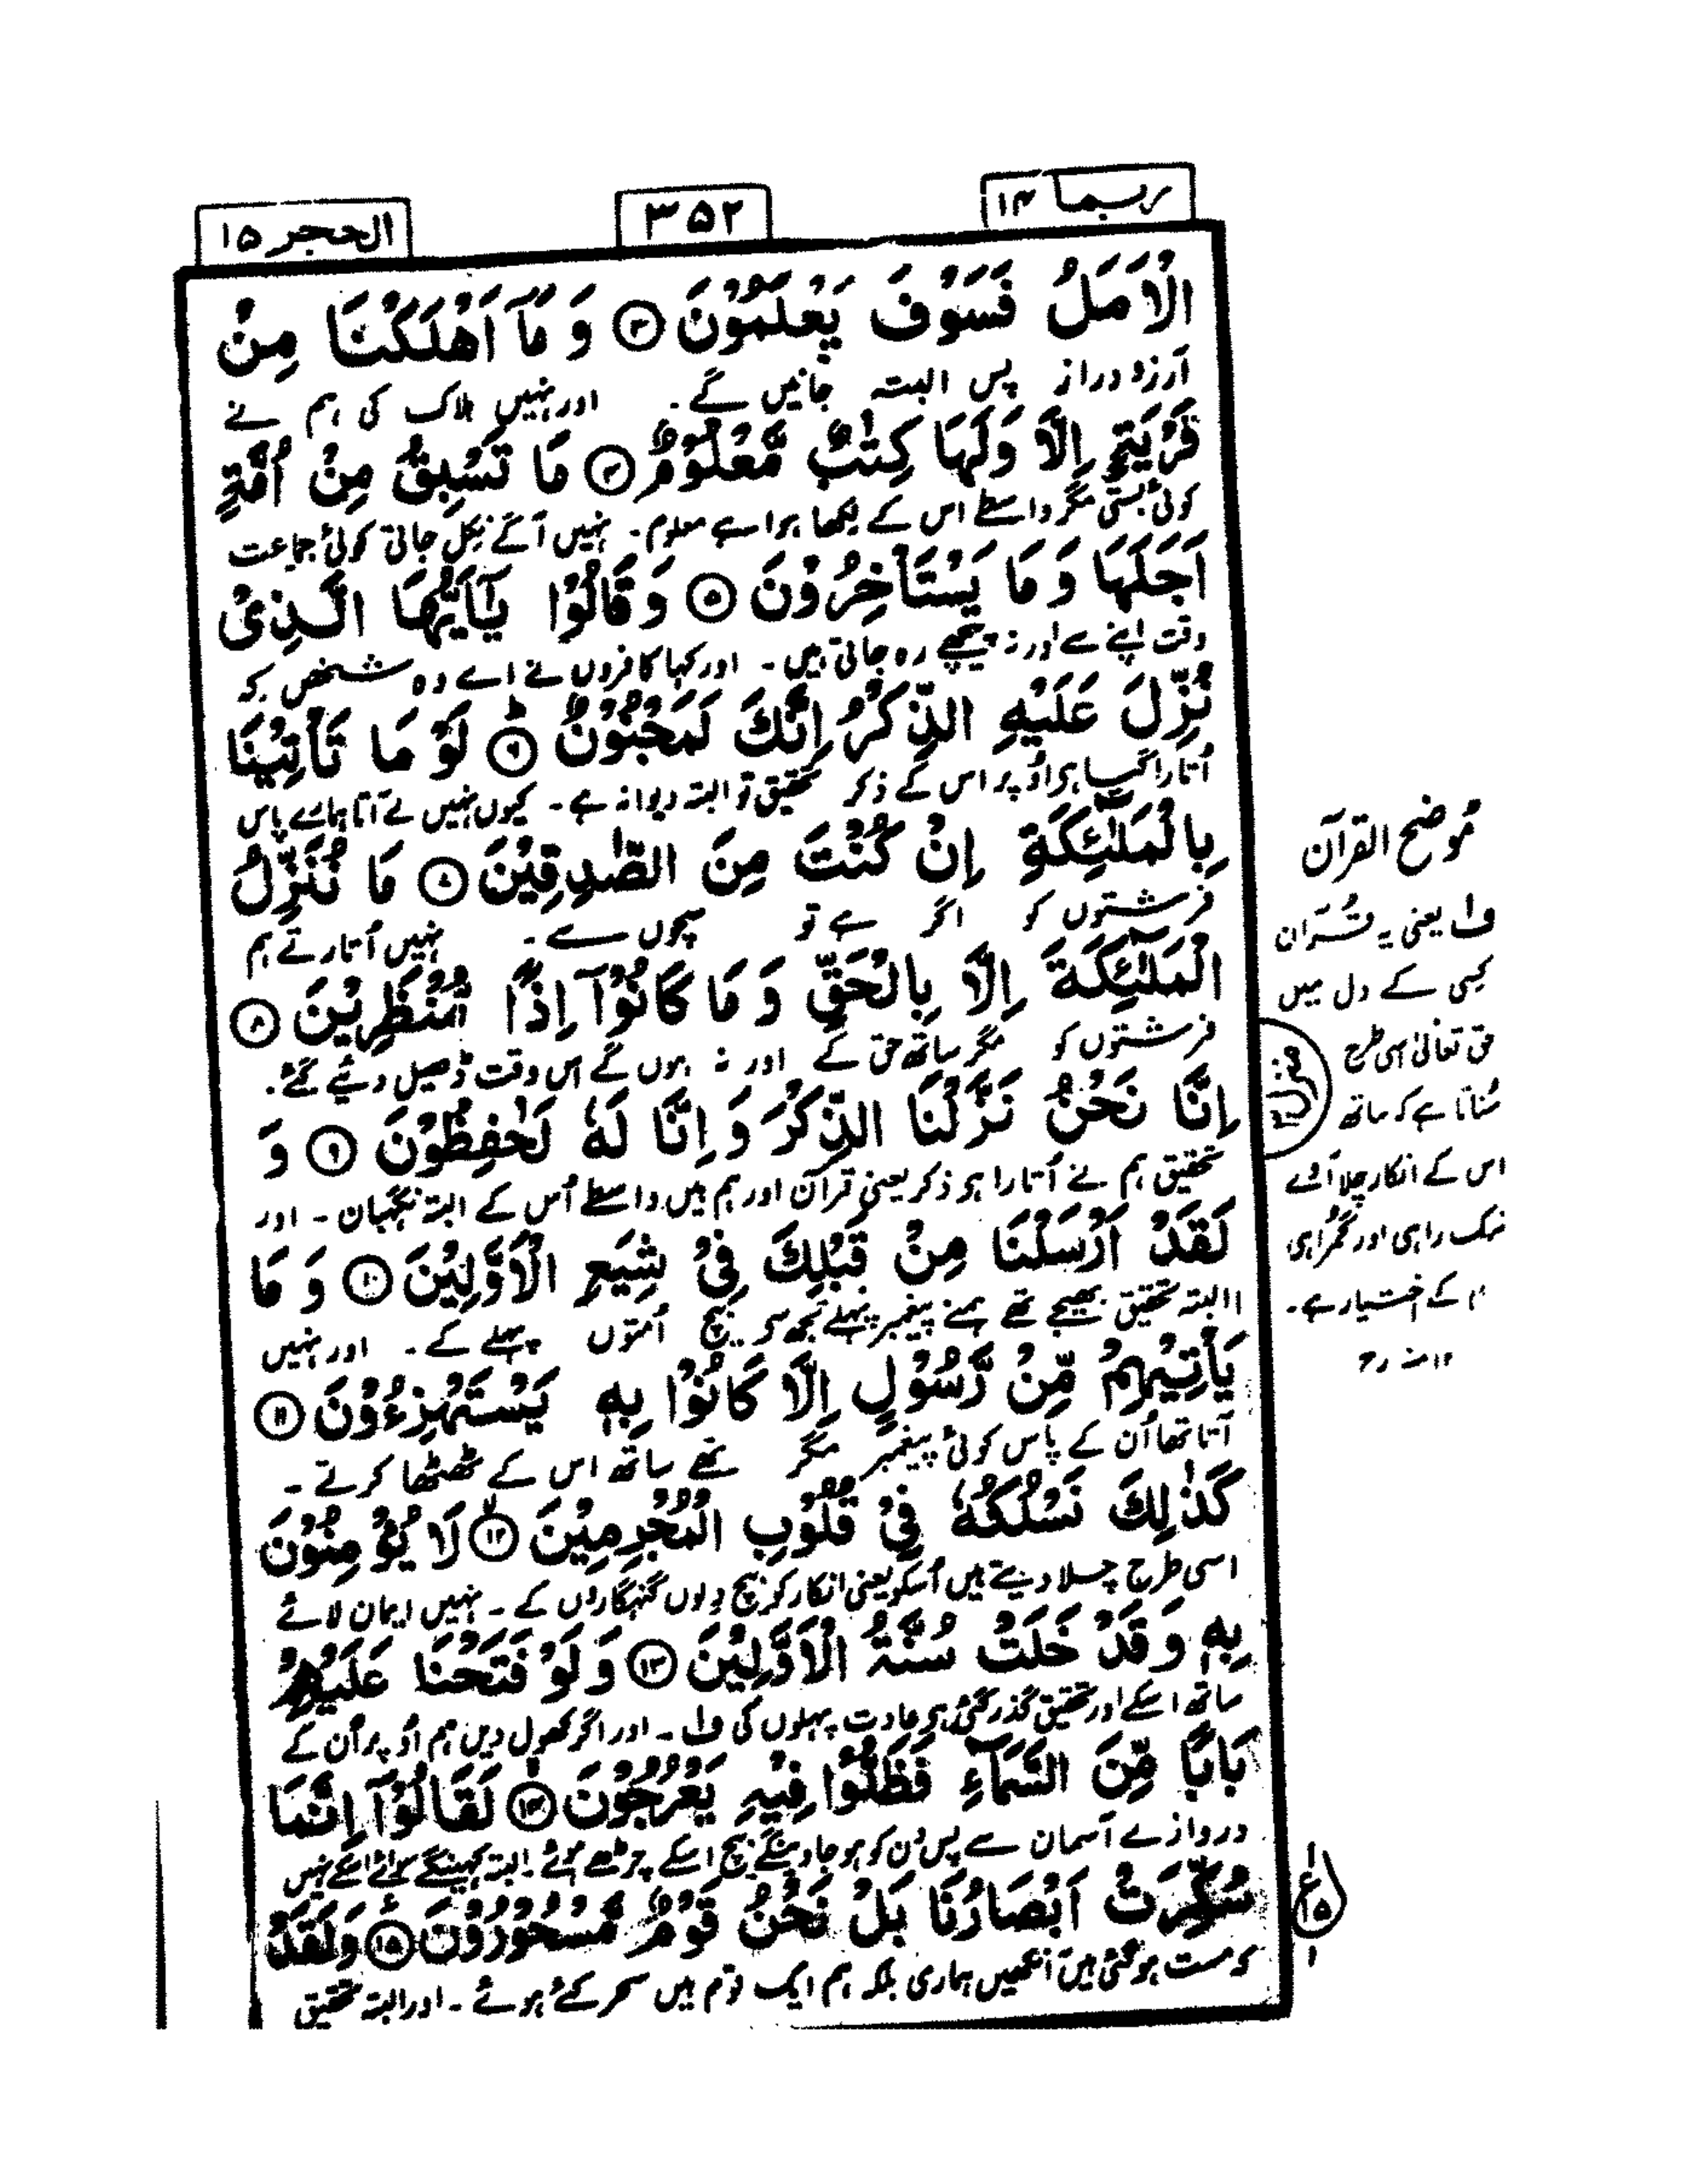 ربما ۱۴
۳۵۲
الحجر ۱۵
الْاَمَلُ فَسَوْفَ يَعْلَمُوْنَ ۳ وَ مَاۤ اَهْلَكْنَا مِنْ
آرزو دراز پس البتہ جانیں گے۔ اور نہیں ہلاک کی ہم نے
قَرْيَةٍ اِلَّا وَلَهَا كِتٰبٌ مَّعْلُوْمٌ ۴ مَا تَسْبِقُ مِنْ اُمَّةٍ
کوئی بستی مگر واسطے اس کے لکھا ہوا ہے معلوم۔ نہیں آگے نکل جاتی کوئی جماعت
اَجَلَهَا وَ مَا يَسْتَاْخِرُوْنَ ۵ وَ قَالُوْا يٰۤاَيُّهَا الَّذِىْ
وقت اپنے سے اور نہ پیچھے رہ جاتی ہیں۔ اور کہا کافروں نے اے وہ شخص کہ
نُزِّلَ عَلَيْهِ الذِّكْرُ اِنَّكَ لَمَجْنُوْنٌ ۶ؕ لَوْ مَا تَاْتِيْنَا
اُتارا گیا ہے اوپر اس کے ذکر تحقیق تو البتہ دیوانہ ہے۔ کیوں نہیں لے آتا ہمارے پاس
بِالْمَلٰٓئِكَةِ اِنْ كُنْتَ مِنَ الصّٰدِقِيْنَ ۷ مَا نُنَزِّلُ
فرشتوں کو اگر ہے تو سچوں سے۔ نہیں اُتارتے ہم
الْمَلٰٓئِكَةَ اِلَّا بِالْحَقِّ وَ مَا كَانُوْۤا اِذًا مُّنْظَرِيْنَ ۸
فرشتوں کو مگر ساتھ حق کے اور نہ ہوں گے اس وقت ڈھیل دئیے گئے۔
اِنَّا نَحْنُ نَزَّلْنَا الذِّكْرَ وَ اِنَّا لَهٗ لَحٰفِظُوْنَ ۹ وَ
تحقیق ہم نے اُتارا ہے ذکر یعنی قرآن اور ہم ہیں واسطے اُس کے البتہ نگہبان۔ اور
لَقَدْ اَرْسَلْنَا مِنْ قَبْلِكَ فِىْ شِيَعِ الْاَوَّلِيْنَ ۱۰ وَ مَا
البتہ تحقیق بھیجے تھے ہمنے پیغمبر پہلے تجھ سے بیچ اُمتوں پہلے کے۔ اور نہیں
يَاْتِيْهِمْ مِّنْ رَّسُوْلٍ اِلَّا كَانُوْا بِهٖ يَسْتَهْزِءُوْنَ ۱۱
آتا تھا اُن کے پاس کوئی پیغمبر مگر تھے ساتھ اس کے ٹھٹھا کرتے۔
كَذٰلِكَ نَسْلُكُهٗ فِىْ قُلُوْبِ الْمُجْرِمِيْنَ ۱۲ۙ لَا يُؤْمِنُوْنَ
اسی طرح چلا دیتے ہیں اُسکو یعنی انکار کو بیچ دلوں گنہگاروں کے۔ نہیں ایمان لاتے
بِهٖ وَ قَدْ خَلَتْ سُنَّةُ الْاَوَّلِيْنَ ۱۳ وَ لَوْ فَتَحْنَا عَلَيْهِمْ
ساتھ اسکے اور تحقیق گذر گئی ہے عادت پہلوں کی ف۱۔ اور اگر کھول دیں ہم اُوپر اُن کے
بَابًا مِّنَ السَّمَآءِ فَظَلُّوْا فِيْهِ يَعْرُجُوْنَ ۱۴ۙ لَقَالُوْۤا اِنَّمَا
دروازے آسمان سے پس دن کو ہو جاوینگے بیچ اسکے چڑھتے ہوئے۔ البتہ کہینگے سوائے اسکے نہیں
سُكِّرَتْ اَبْصَارُنَا بَلْ نَحْنُ قَوْمٌ مَّسْحُوْرُوْنَ ۱۵ؕ وَ لَقَدْ
کہ مست ہو گئی ہیں آنکھیں ہماری بلکہ ہم ایک قوم ہیں سحر کئے ہوئے۔ اور البتہ تحقیق
مُوضح القرآن
ف۱ یعنی یہ قرآن
کسی کے دل میں
حق تعالیٰ اسی طرح
سُناتا ہے کہ ساتھ
اس کے انکار چلا آئے
نیک راہی اور گمراہی
کے اختیار ہے۔
۱۲ منہ رح
ع
۱۵
۱